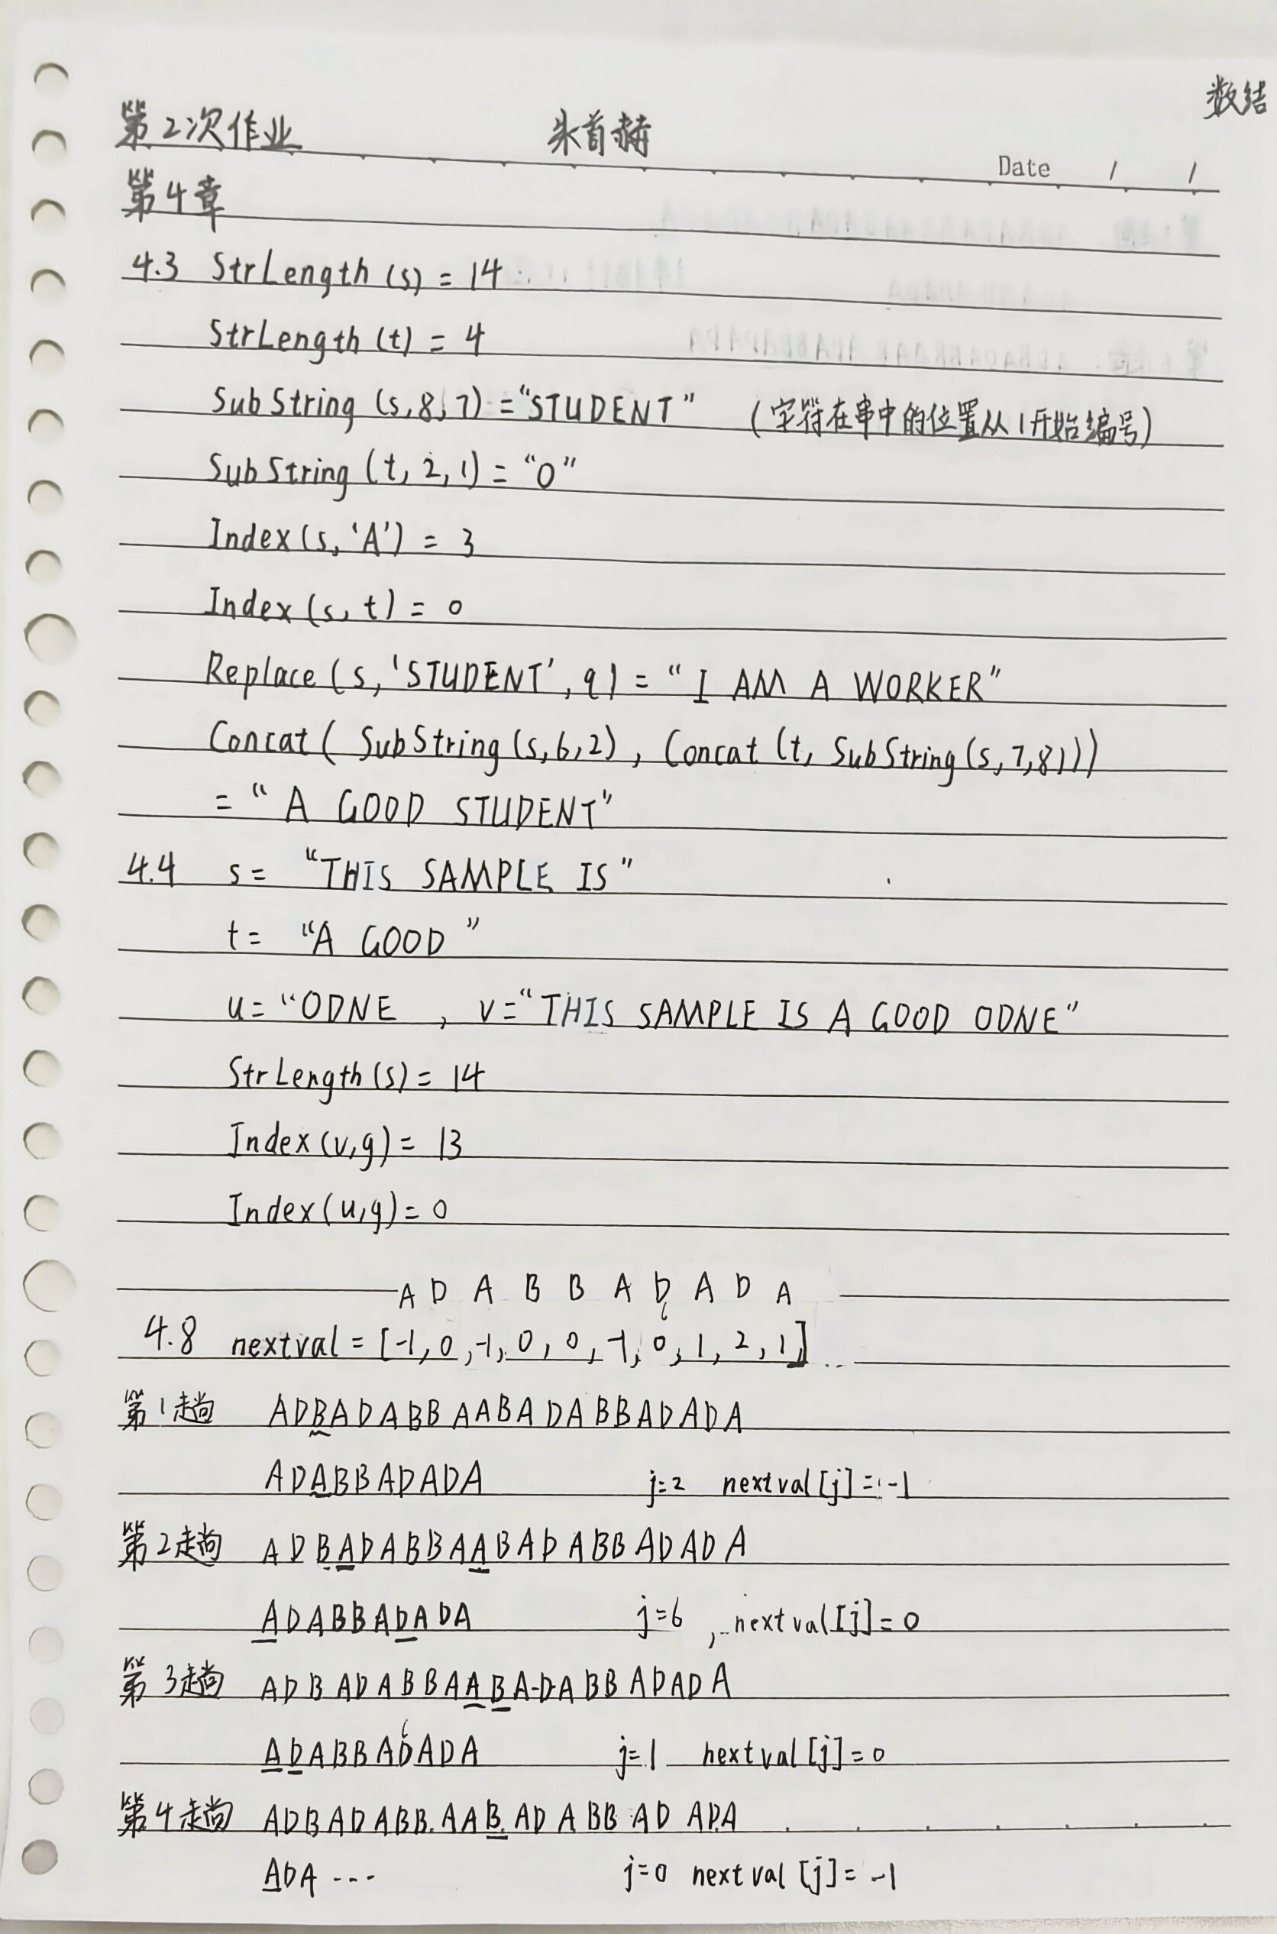 数结
第2次作业 朱首赫
Date / /
第4章
4.3 StrLength (s) = 14
StrLength (t) = 4
SubString (s,8,7) = "STUDENT" (字符在串中的位置从1开始编号)
SubString (t, 2, 1) = "O"
Index (s, 'A') = 3
Index (s, t) = 0
Replace (s, 'STUDENT', q) = "I AM A WORKER"
Concat ( SubString (s,6,2) , Concat (t, SubString (s,7,8)))
= "A GOOD STUDENT"
4.4 s= "THIS SAMPLE IS"
t= "A GOOD "
u= "ODNE , v= "THIS SAMPLE IS A GOOD ODNE"
StrLength (s) = 14
Index (v,g) = 13
Index (u,g) = 0
A D A B B A D A D A
6
4.8 nextval = [-1, 0, -1, 0, 0, -1, 0, 1, 2, 1]
第1趟 ADBADABBAABADABBADADA
ADABBADADA j=2 nextval[j] = -1
第2趟 ADBADABBAABADABBADADA
ADABBADADA j=6 , nextval[j] = 0
第3趟 ADBADABBAABA-DABBADADA
6
ADABBADADA j=1 nextval[j] = 0
第4趟 ADBADABB.AAB.ADABBADADA
ADA --- j=0 nextval[j] = -1